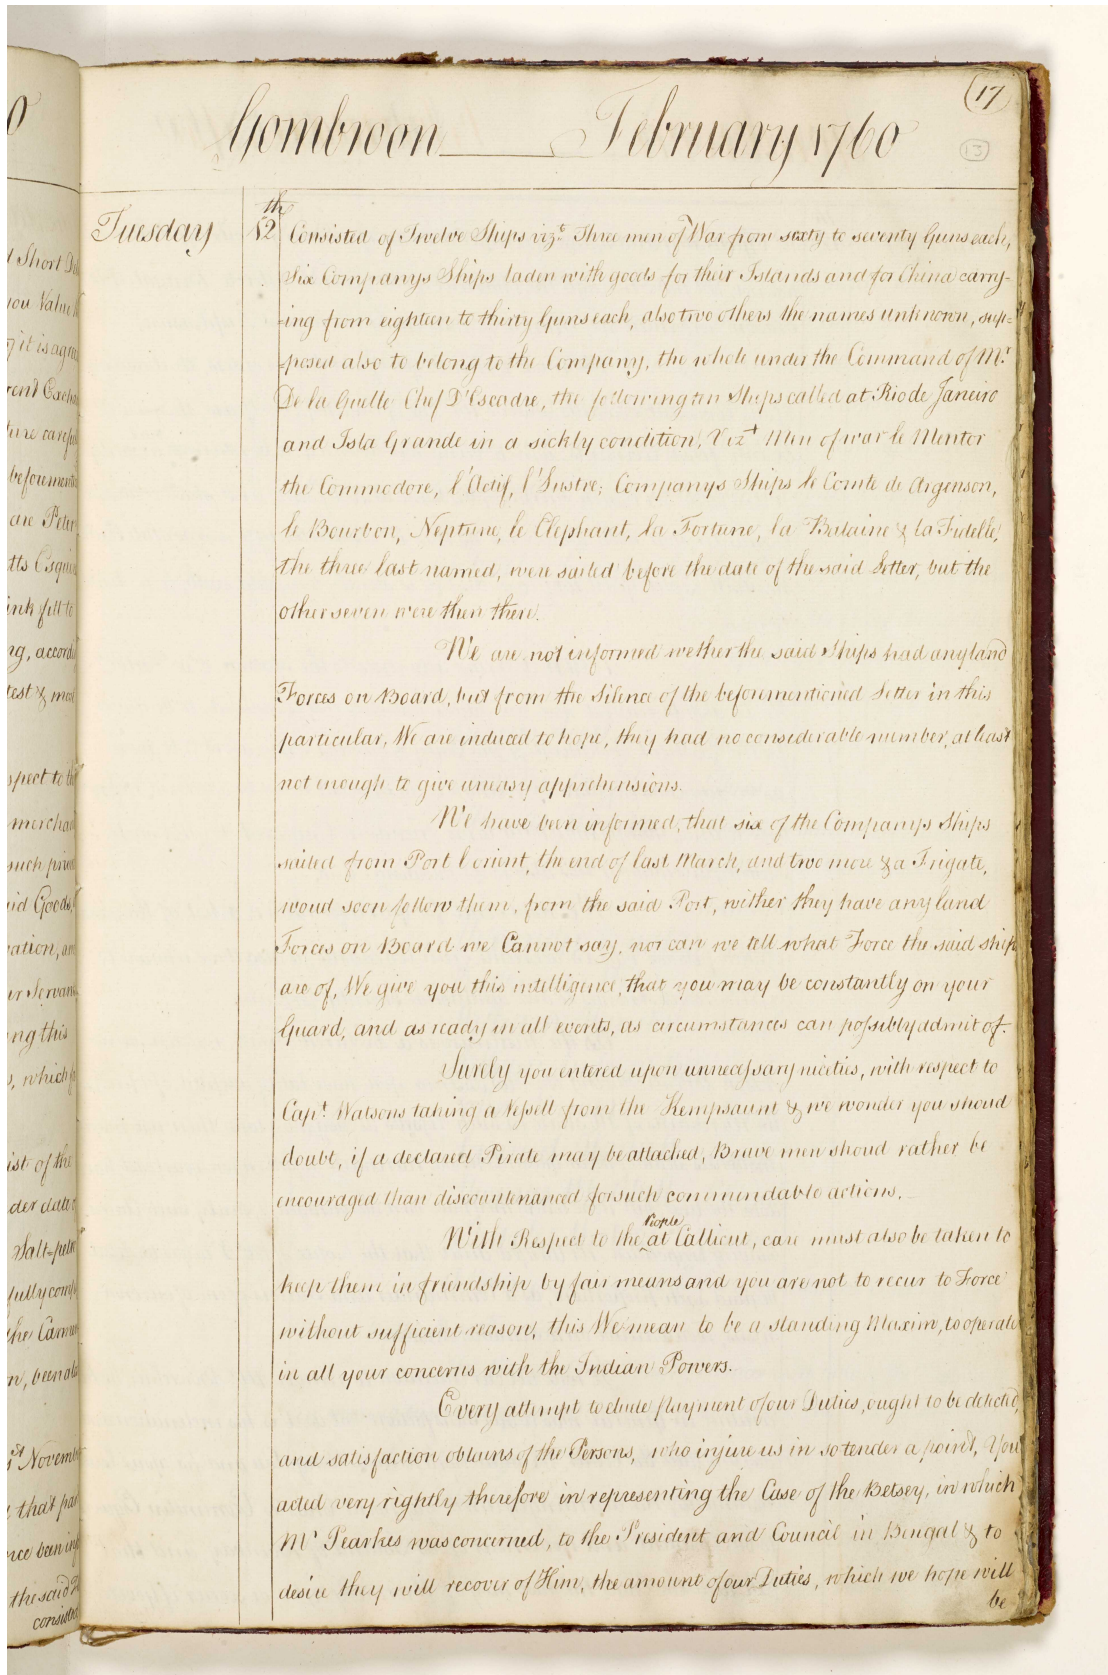 Gombroon February 1760
17
13
Tuesday
12th Consisted of Twelve Ships vizt. Three men of War from sixty to seventy Guns each,
Six Companys Ships laden with goods for their Islands and for China carry-
-ing from eighteen to thirty Guns each, also two others the names unknown, sup-
-posed also to belong to the Company, the whole under the Command of Mr.
De la Guelle Chef D'Escadre, the following ten Ships called at Rio de Janeiro
and Isla Grande in a sickly condition, Vizt Men of war le Mentor
the Commodore, l'Actif, l'Lustre; Companys Ships le Comte de Argenson,
le Bourbon, Neptune, le Elephant, la Fortune, la Balaine & La Fidelle,
the three last named, were sailed before the date of the said Letter, but the
other seven were then there.
We are not informed wether the said Ships had any land
Forces on Board, but from the Silence of the beforementioned Letter in this
particular, We are induced to hope, they had no considerable number, at least
not enough to give uneasy apprehensions.
We have been informed, that six of the Companys Ships
sailed from Port l'orient, the end of last March, and two more & a Frigate,
woud soon follow them, from the said Port, wither they have any land
Forces on Board we Cannot say, nor can we tell what Force the said ships
are of, We give you this intelligence, that you may be constantly on your
Guard, and as ready in all events, as circumstances can possibly admit of.
Surely you entered upon unnecessary niceties, with respect to
Capt. Watsons taking a Vessell from the Kempsaunt & we wonder you shoud
doubt, if a declared Pirate may be attacked, Brave men shoud rather be
encouraged than discountenanced for such commendable actions.
With Respect to the People at Callicut, care must also be taken to
keep them in friendship by fair means and you are not to recur to Force
without sufficient reason, this We mean to be a standing Maxim, to operate
in all your concerns with the Indian Powers.
Every attempt to elude Payment of our Duties, ought to be detected,
and satisfaction obtains of the Persons, who injure us in so tender a point, You
acted very rightly therefore in representing the Case of the Betsey, in which
Mr Pearkes was concerned, to the President and Council in Bengal & to
desire they will recover of Him, the amount of our Duties, which we hope will
be